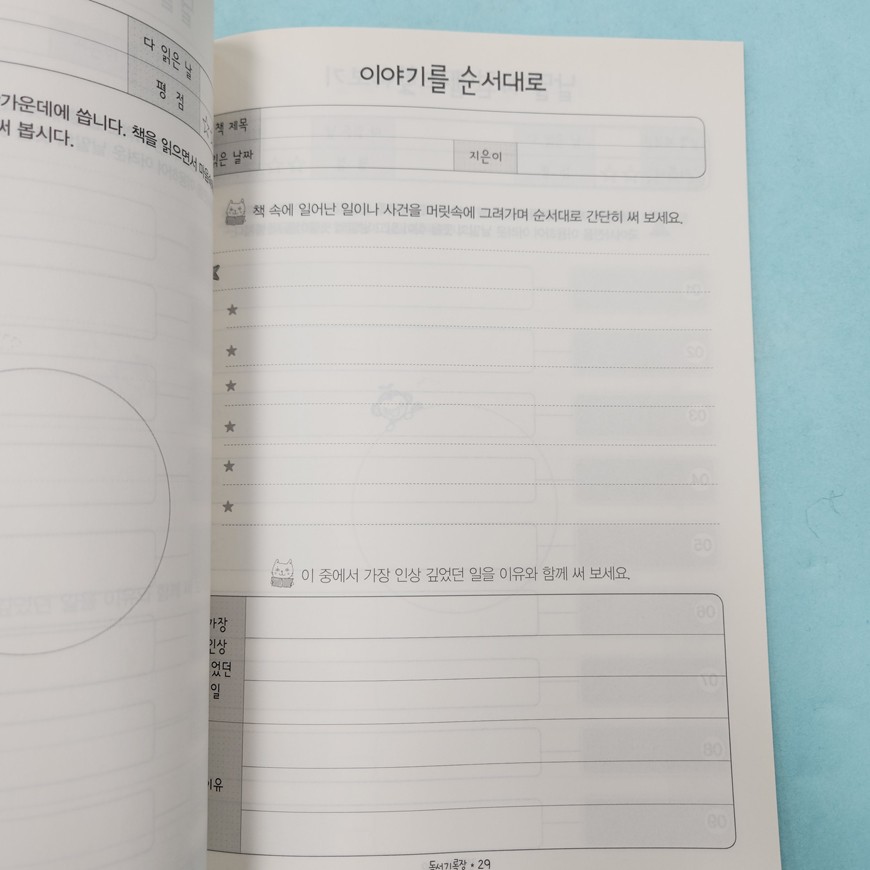 다 읽은 날
평 점
가운데에 씁니다. 책을 읽으면서 마음속
써 봅시다.
이야기를 순서대로
책 제목
읽은 날짜
지은이
책 속에 일어난 일이나 사건을 머릿속에 그려가며 순서대로 간단히 써 보세요.
이 중에서 가장 인상 깊었던 일을 이유와 함께 써 보세요.
가장
인상
었던
일
이유
독서기록장 • 29